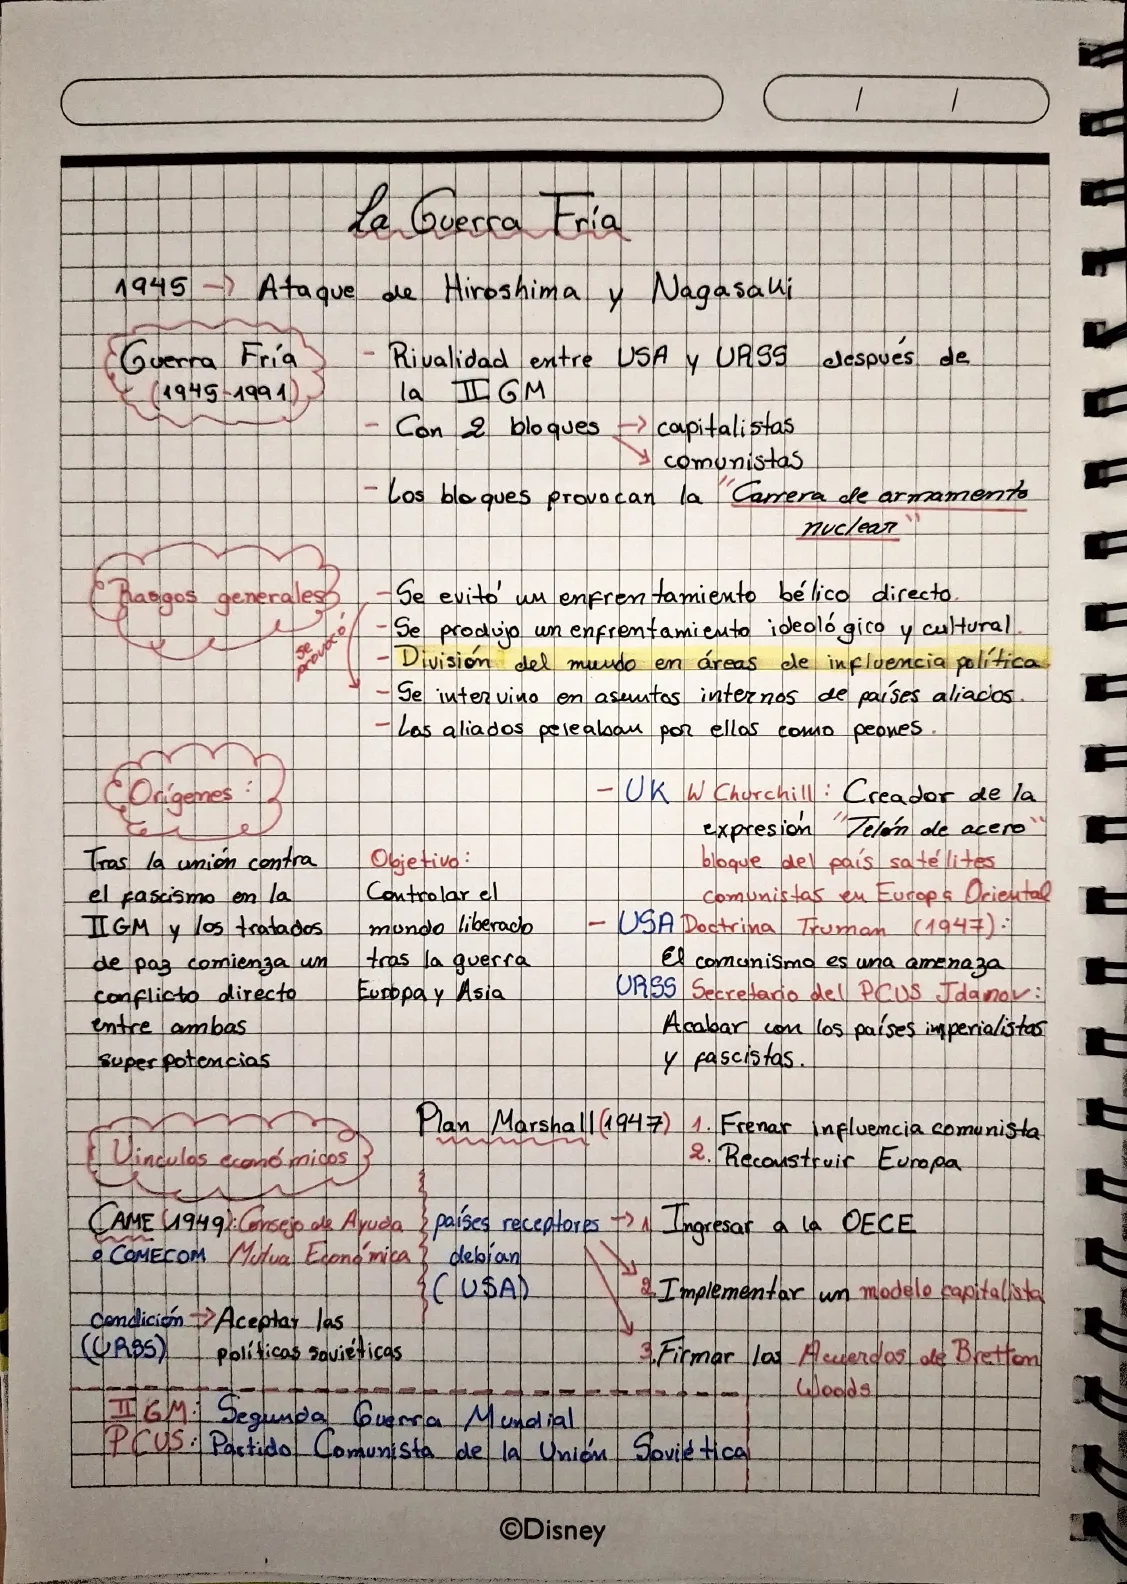 La Guerra Fría
1945 → Ataque de Hiroshima y Nagasaki
Guerra Fría
(1945-1991)
- Rivalidad entre USA y URSS después de
la II GM
- Con 2 bloques → capitalistas
comunistas
- Los bloques provocan la "Carrera de armamento
nuclear"
Rasgos generales
se
provocó
- Se evitó un enfrentamiento bélico directo.
- Se produjo un enfrentamiento ideológico y cultural.
- División del mundo en áreas de influencia política
- Se intervino en asuntos internos de países aliados.
- Los aliados peleaban por ellos como peones.
Orígenes:
Tras la unión contra
el fascismo en la
II GM y los tratados
de paz comienza un
conflicto directo
entre ambas
superpotencias
Objetivo:
Controlar el
mundo liberado
tras la guerra
Europa y Asia
- UK W Churchill: Creador de la
expresión "Telón de acero"
bloque del país satélites
comunistas en Europa Oriental
- USA Doctrina Truman (1947):
el comunismo es una amenaza
URSS Secretario del PCUS Jdanov:
Acabar con los países imperialistas
y fascistas.
Vinculos económicos
Plan Marshall (1947) 1. Frenar influencia comunista
2. Reconstruir Europa
CAME (1949): Consejo de Ayuda
o COMECOM Mutua Económica
condición → Aceptar las
(URSS) políticas soviéticas
países receptores → 1. Ingresar a la OECE
debían
(USA)
2. Implementar un modelo capitalista
3. Firmar los Acuerdos de Bretton
Woods
II GM: Segunda Guerra Mundial
PCUS: Partido Comunista de la Unión Soviética
©Disney